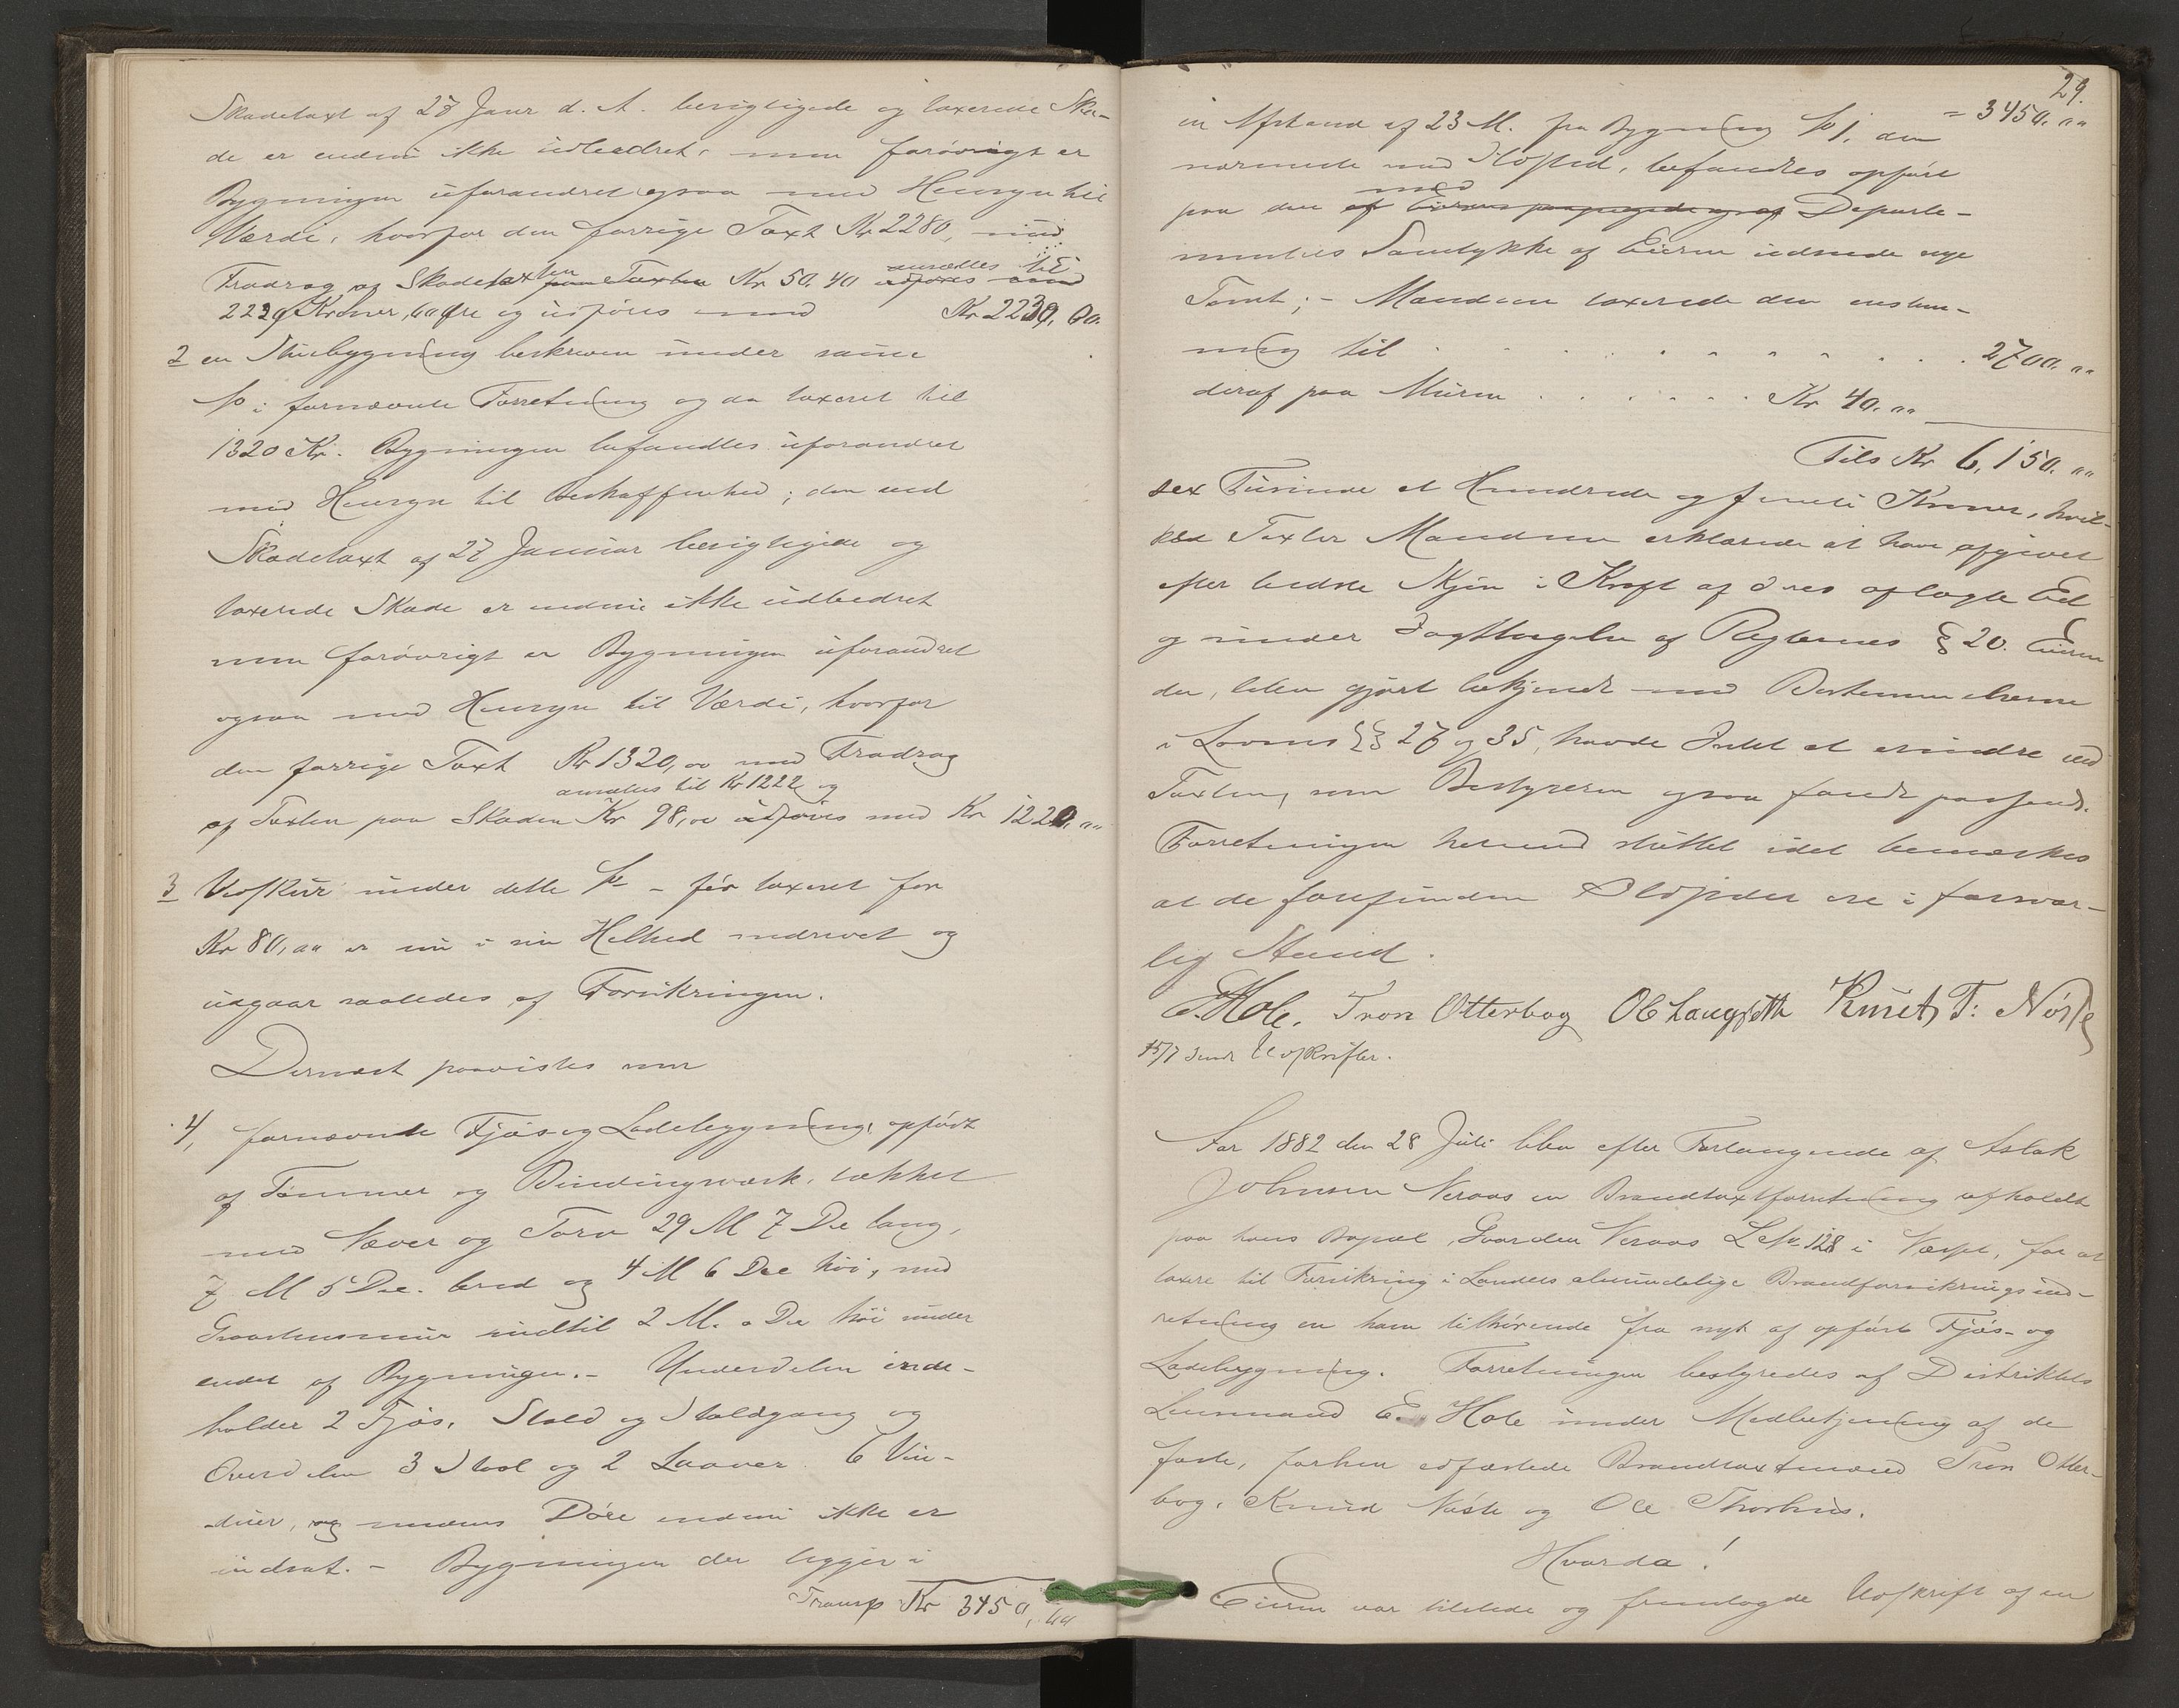 Skadetaxt af 28 Janr d. A. besigtigede og taxerede Ska-
de er endnu ikke udbedret, men forøvrigt er
Bygningen uforandret ogsaa med Hensyn til
Værdi, hvorfor den forrige Taxt Kr 2280, med
ansættes til
Fradrag af Skadetaxten Kr 50.40 udføres med
2229 Kroner, 60 Øre og udføres med Kr 2230,00.
2 en Stuebygning beskreven under samme
№ i fornævnte Forretning og da taxeret til
1320 Kr. Bygningen befandtes uforandret
med Hensyn til Beskaffenhed; den ved
Skadetaxt af 27 Januar besigtigede og
taxerede Skade er endnu ikke udbedret
men forøvrigt er Bygningen uforandret
ogsaa med Hensyn til Værdi, hvorfor
den forrige Taxt Kr 1320,00 med Fradrag
ansættes til Kr 1222 og
af Taxten paa Skaden Kr 98,00 udføres med Kr 1220,00
3 Vedskur under dette № – før taxeret for
Kr 80,00 er nu i sin Helhed nedrevet og
udgaar saaledes af Forsikringen.
Dernæst paavistes som
4, fornævnte Fjøs og Ladebygning, opført
af Tømmer og Bindingsværk, tækket
med Næver og Torv 29 M 7 De lang,
7 M 5 De. bred og 4 M 6 De høi, med
Graastensmur indtil 2 M. 0 De høi under
endel af Bygningen. – Underdelen inde-
holder 2 Fjøs, Stald og Staldgang og
Overdelen 3 Stal og 2 Laaver. 6 Vin-
duer, og Døre endnu ikke er
indsat. – Bygningen der ligger i
Transp Kr 3450,00
29.
en Afstand af 23 M. fra Bygning № 1, den = 3450.00
nærmeste med Ildsted, befandtes opført
med
paa den af Eieren paapegede og af Departe-
mentets Samtykke af Eieren udsede nye
Tomt; – Mændene taxerede den enstem-
mig til . . . . . . . . . . . 2700.00
deraf paa Muren . . . . . . Kr 40.00
Tils Kr 6,150.00
sex Tusinde et Hundrede og femti Kroner, hvil-
ken Taxter Mændene erklærede at have afgivet
efter bedste Skjøn i Kraft af deres aflagte Ed
og under Iagttagelse af Reglernes § 20. Eieren
der, blev gjort bekjendt med Bestemmelserne
i Lovens §§ 27 og 35, havde Intet at erindre ved
Taxten, som Bestyreren ogsaa fandt passende.
Forretningen hermed sluttet idet bemærkes
at de forefundne Ildsteder ere i forsvar-
lig Stand.
E. Hole. Tron Otterbog Ol Laugseth Knut T: Nørste
15/7 sendt Udskrifter.
Aar 1882 den 28 Juli blev efter Forlangende af Aslak
Johnsen Neraas en Brandtaxtforretning afholdt
paa hans Bopæl, Gaarden Neraas L№ 128 i Næsset, for at
taxere til Forsikring i Landets almindelige Brandforsikringsind-
retning en ham tilhørende fra nyt af opført Fjøs- og
Ladebygning. Forretningen bestyredes af Distriktets
Lensmand E. Hole under Medbetjening af de
faste, forhen edfæstede Brandtaxtmænd Tron Otter-
bog, Knud Nøste og Ole Thorhus.
Hvorda!
Eieren var tilstede og fremlagde Udskrift af en